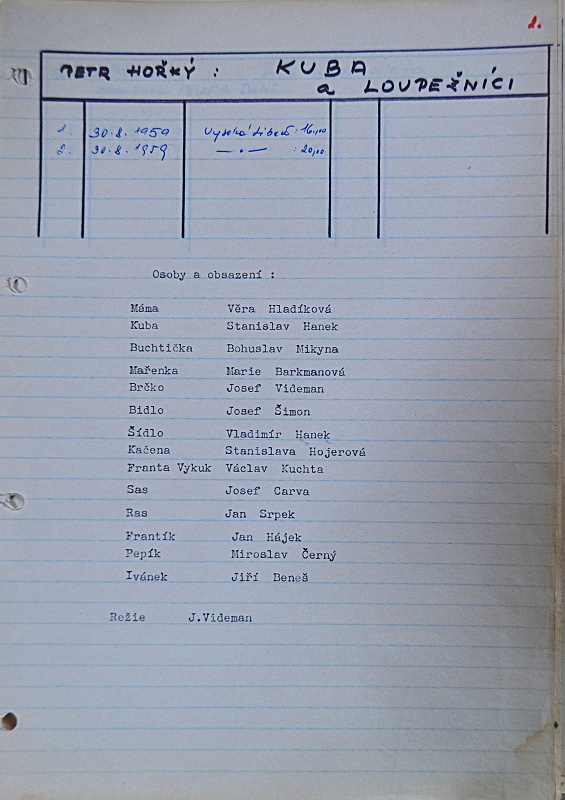 1.
PETR HOŘKÝ : KUBA
a LOUPEŽNÍCI
1. 30.8.1959 Vysoká Libeň : 16,00
2. 30.8.1959 — • — : 20,00
Osoby a obsazení :
Máma Věra Hladíková
Kuba Stanislav Hanek
Buchtička Bohuslav Mikyna
Mařenka Marie Barkmanová
Brčko Josef Videman
Bidlo Josef Šimon
Šídlo Vladimír Hanek
Kačena Stanislava Hojerová
Franta Vykuk Václav Kuchta
Sas Josef Carva
Ras Jan Srpek
Frantík Jan Hájek
Pepík Miroslav Černý
Ivánek Jiří Beneš
Režie J.Videman